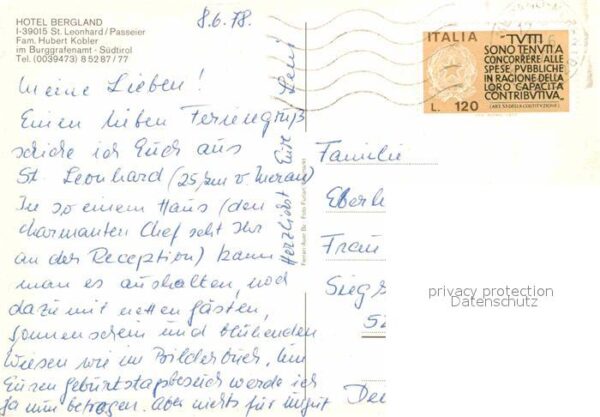 HOTEL BERGLAND
I-39015 St. Leonhard / Passeier
Fam. Hubert Kobler
im Burggrafenamt - Südtirol
Tel. (0039473) 85287/77
8.6.78.
ITALIA
"TVTTI
SONO TENVTI A
CONCORRERE ALLE
SPESE PVBBLICHE
IN RAGIONE DELLA
LORO CAPACITÀ
CONTRIBVTIVA"
(ART. 53 DELLA COSTITVZIONE)
L. 120
Meine Lieben!
Einen lieben Feriengruß
schicke ich Euch aus
St. Leonhard (25 km v. Meran)
In so einem Haus (den
charmanten Chef seht Ihr
an der Reception) kann
man es aushalten, noch
dazu mit netten Gästen,
Sonnenschein und blühenden
Wiesen wie im Bilderbuch. Um
Euren Geburtstagsbesuch werde ich
ja nun betrogen. Aber nichts für ungut
Herzlichst Eure Leni
Familie
Eberh
Frau
Siegs
52
Deu
privacy protection
Datenschutz